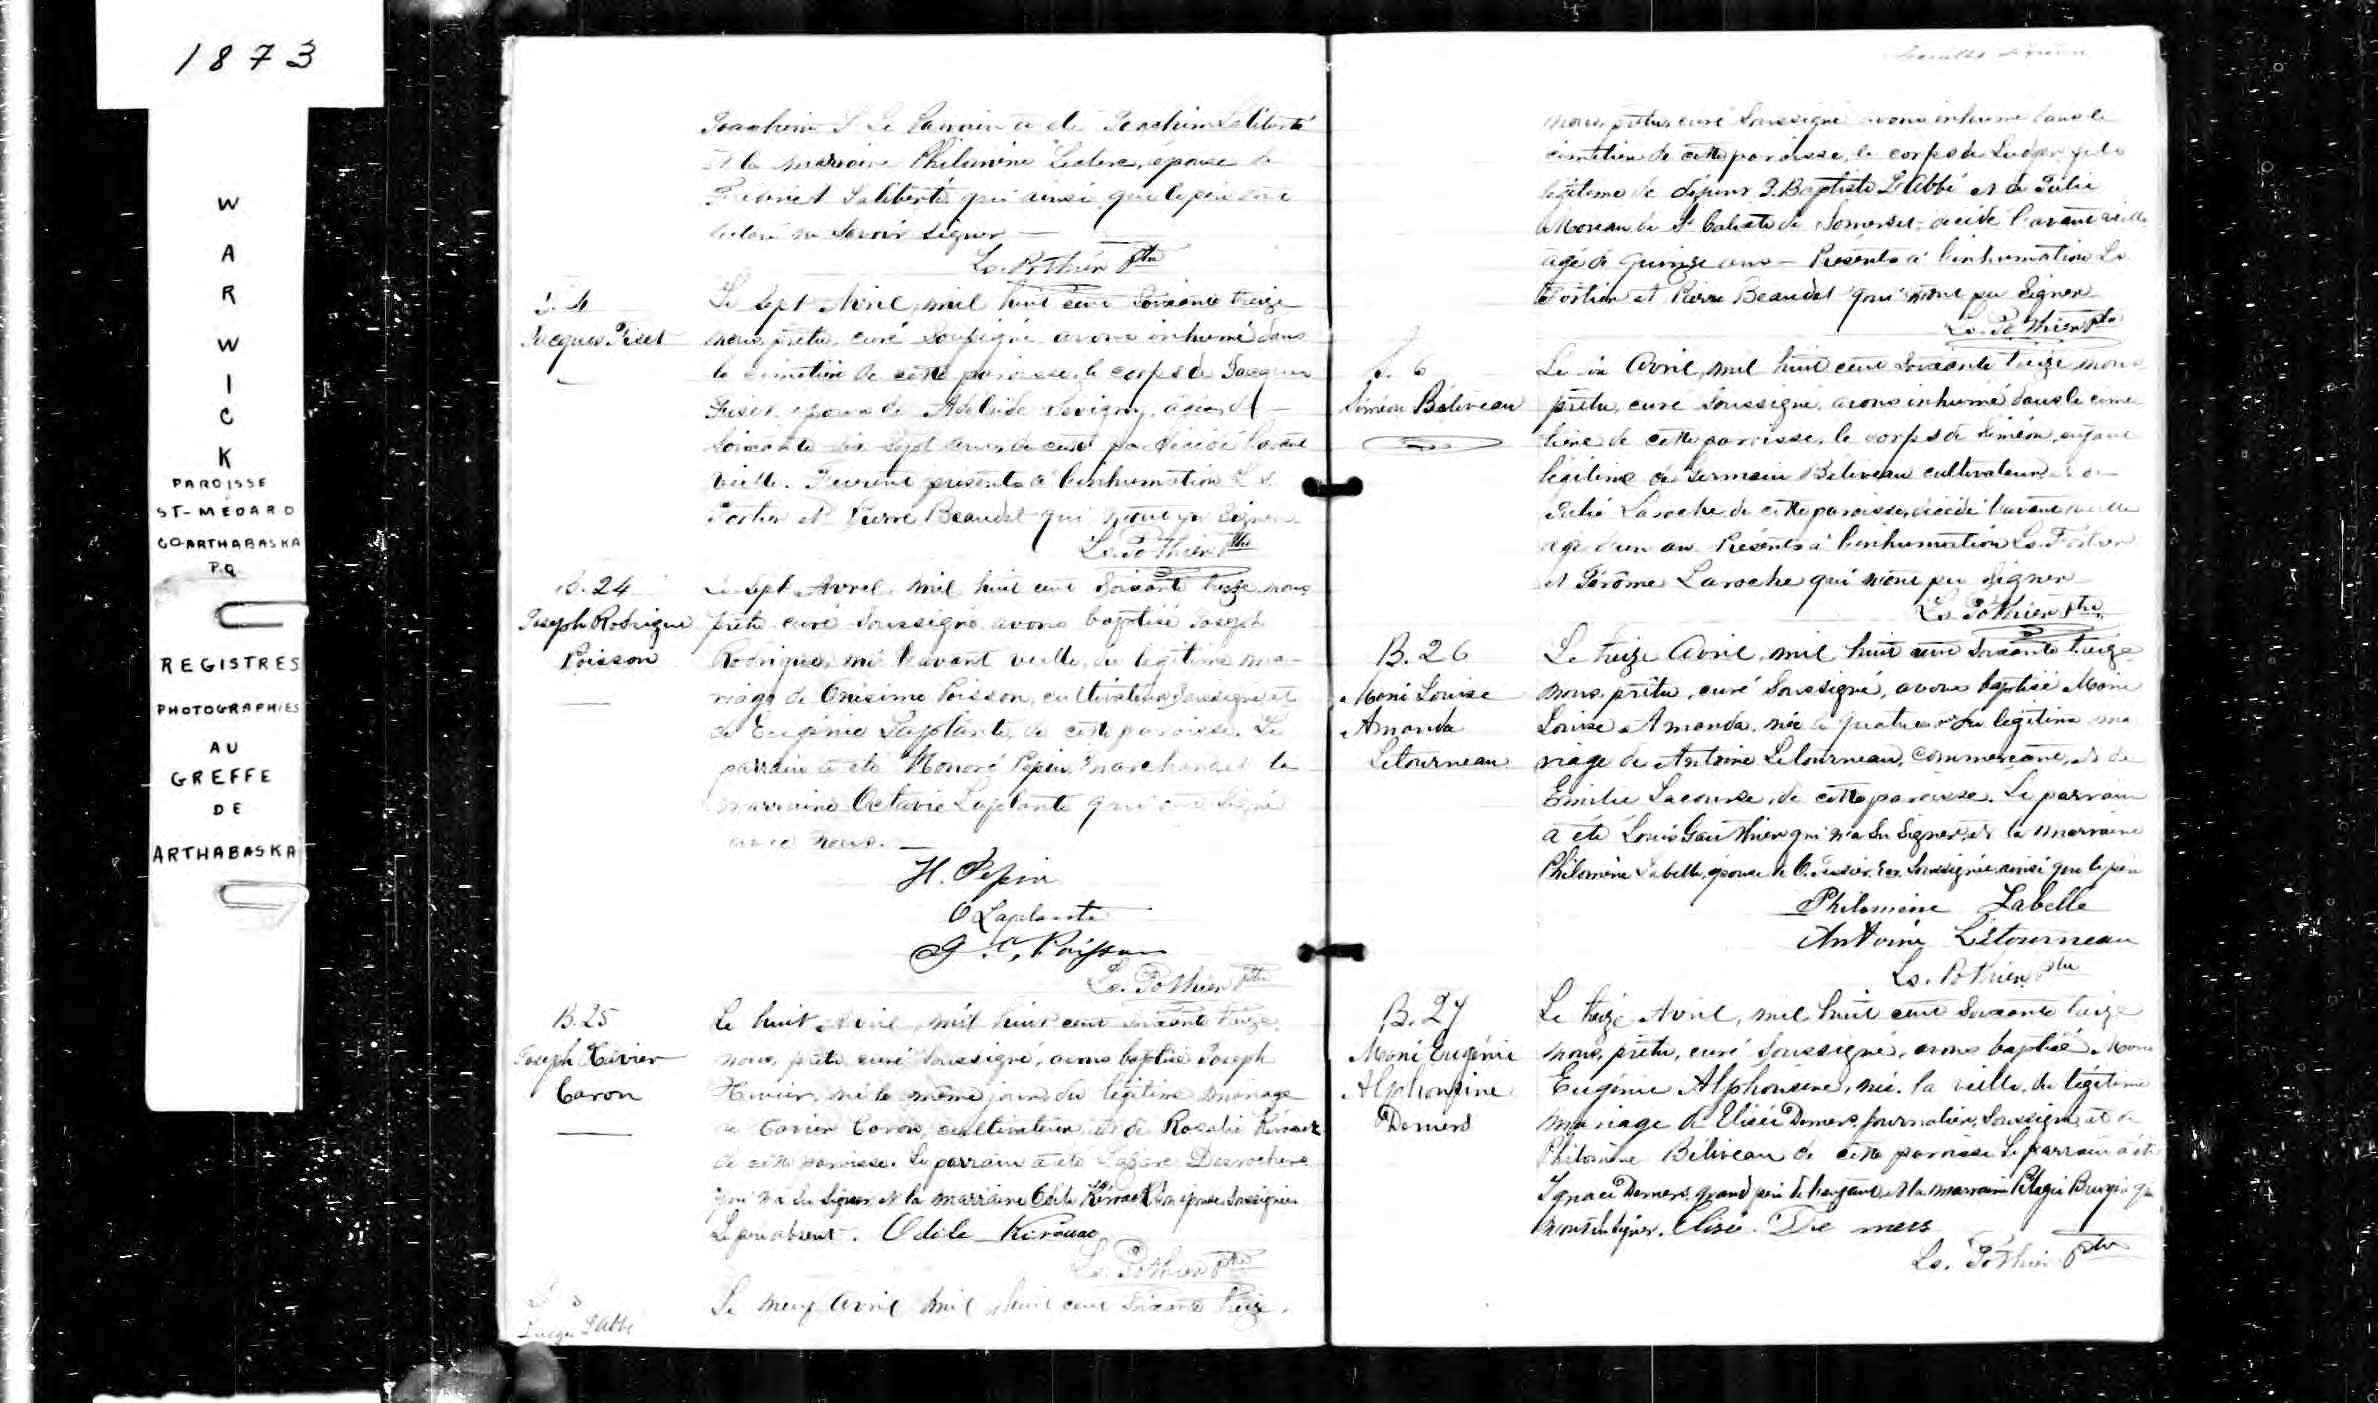 1873
WARWICK
PAROISSE
ST-MÉDARD
CO ARTHABASKA
P.Q.
REGISTRES
PHOTOGRAPHIES
AU
GREFFE
DE
ARTHABASKA
Joachim Le Parrain a été Joachim Laliberté
et la marraine Philomène Leclerc, épouse de
Laliberté qui ainsi que le père ont
déclaré ne savoir signer
Ls. Pothier Ptre
S. 4
Jacques Fiset
Le sept Avril, mil huit cent soixante treize
nous prêtre, curé soussigné avons inhumé dans
le cimetière de cette paroisse, le corps de Jacques
Fiset, époux de Adélaïde Sevigny, âgé de
soixante dix sept ans, de cette par. décédé l'avant
veille. Furent présents à l'inhumation Ls
Fortier et Pierre Beaudet qui n'ont pu signer
Ls. Pothier Ptre
B. 24
Joseph Rodrigue
Poisson
Le sept Avril mil huit cent soixante treize nous
prêtre curé soussigné avons baptisé Joseph
Rodrigue, né l'avant veille, du légitime ma-
riage de Onésime Poisson, cultivateur soussigné et
de Eugénie Laplante, de cette paroisse. Le
parrain a été Honoré Pepin, marchand et la
marraine Octavie Laplante qui ont signé
avec nous.
H. Pepin
O Laplante
Poisson
Ls. Pothier Ptre
B. 25
Joseph Xavier
Caron
Le huit Avril, mil huit cent soixante treize,
nous, prêtre curé soussigné, avons baptisé Joseph
Xavier, né le même jour, du légitime mariage
de Xavier Caron, cultivateur et de Rosalie Kéroack
de cette paroisse. Le parrain a été Lazare Desrochers
qui n'a su signer et la marraine Odile Kéroack son épouse soussignée
Le père absent. Odile Kirouac
Ls. Pothier Ptre
S. 5
Ludger Labbé
Le neuf Avril mil huit cent soixante treize,
nous, prêtre, curé soussigné avons inhumé dans le
cimetière de cette paroisse, le corps de Ludger fils
légitime de défunt J. Baptiste L'Abbé et de Julie
Moreau de St Calixte de Somerset décédé l'avant veille
âgé de quinze ans — Présents à l'inhumation Ls
Fortier et Pierre Beaudet qui n'ont pu signer
Ls. Pothier Ptre
S. 6
Siméon Béliveau
Le dix Avril, mil huit cent soixante treize, nous
prêtre, curé soussigné, avons inhumé dans le cime
tière de cette paroisse, le corps de Siméon, enfant
légitime de Germain Béliveau cultivateur et de
Julie Laroche, de cette paroisse, décédé l'avant veille
âgé d'un an. Présents à l'inhumation Ls. Fortier
et Jérôme Laroche qui n'ont pu signer
Ls. Pothier Ptre
B. 26
Marie Louise
Amanda
Letourneau
Le treize Avril, mil huit cent soixante treize
nous, prêtre, curé soussigné, avons baptisé Marie
Louise Amanda, née le quatre du légitime ma
riage de Antoine Letourneau, commerçant, et de
Emilie Lacourse, de cette paroisse. Le parrain
a été Louis Gauthier qui n'a su signer, et la marraine
Philomène Labelle, épouse de O. Tessier, Ecr. soussignée ainsi que le père
Philomène Labelle
Antoine Létourneau
Ls. Pothier Ptre
B. 27
Marie Eugénie
Alphonsine
Demers
Le treize Avril, mil huit cent soixante treize
nous, prêtre, curé soussigné, avons baptisé Marie
Eugénie Alphonsine, née la veille, du légitime
mariage de Elisée Demers, journalier, soussigné, et de
Philomène Béliveau de cette paroisse. Le parrain a été
Ignace Demers, grand père de l'enfant, et la marraine Pélagie qui
n'ont su signer. Elisée De mers
Ls. Pothier Ptre